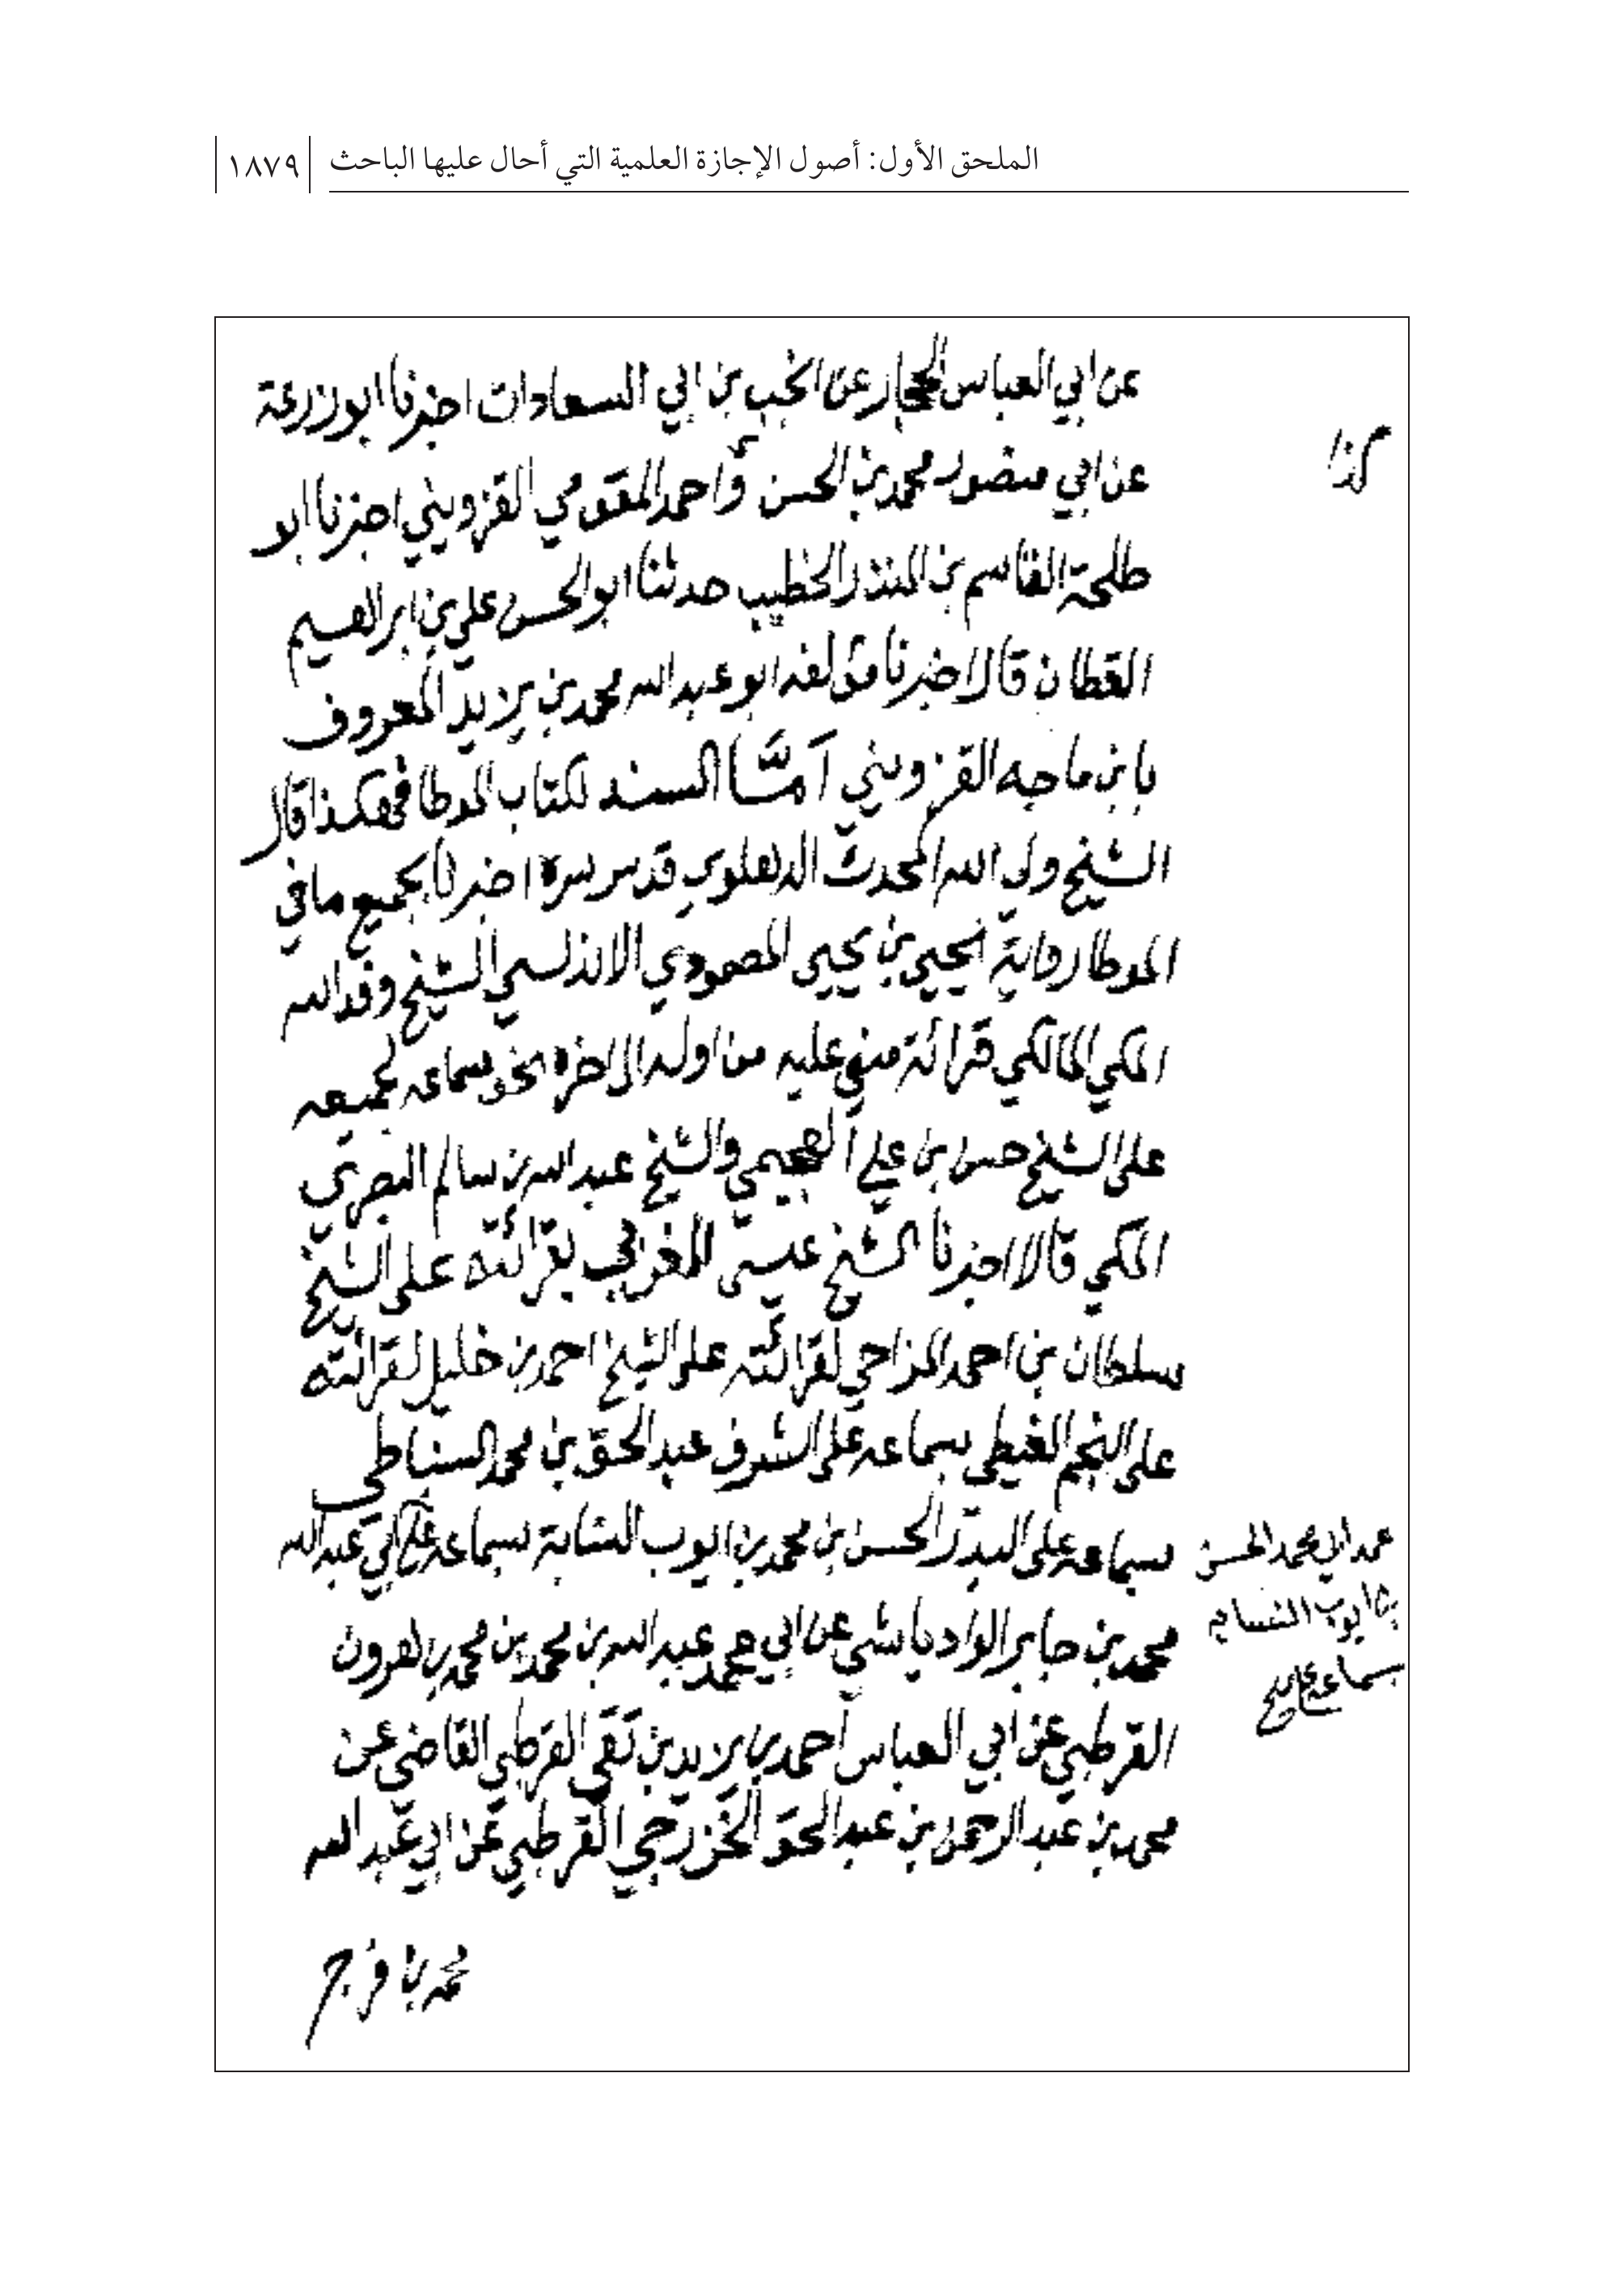 الملحق الأول: أصول الإجازة العلمية التي أحال عليها الباحث
١٨٧٩
عن ابي العباس الحجار عن انجب بن ابي السعادات اخبرنا ابو زرعة
كذا
عن ابي منصور محمد بن الحسن واحمد المقومي القزويني اخبرنا ابو
طلحة القاسم بن المنذر الخطيب حدثنا ابو الحسن علي بن ابراهيم
القطان قال اخبرنا مؤلفه ابو عبد الله محمد بن يزيد المعروف
بابن ماجه القزويني امّا السند لكتاب الموطا فهكذا قال
الشيخ ولي الله المحدث الدهلوي قدس سره اخبرنا بجميع ما في
الموطا رواية يحيى بن يحيى المصمودي الاندلسي الشيخ وفد الله
المكي المالكي قرائة مني عليه من اوله الى اخره بحق سماعه لجميعه
على الشيخ حسن بن علي العجيمي والشيخ عبد الله بن سالم البصري
المكي قالا اخبرنا الشيخ عيسى المغربي بقرائته على الشيخ
سلطان بن احمد المزاحي بقرائته على الشيخ احمد بن خليل بقرائته
على النجم الغيطي بسماعه على الشرف عبد الحق بن محمد السنباطي
بسماعه على البدر الحسن بن محمد بن ايوب النسابة بسماعه على ابي عبد الله
ابي محمد الحسن
بن ايوب النسابه
بسماعه على
محمد بن جابر الوادياشي عن ابي محمد عبد الله بن محمد بن محمد بن هرون
القرطبي عن ابي العباس احمد بن يزيد بن تقى القرطبي القاضي عن
محمد بن عبد الرحمن بن عبد الحق الخزرجي القرطبي عن ابي عبد الله
محمد بن فرج